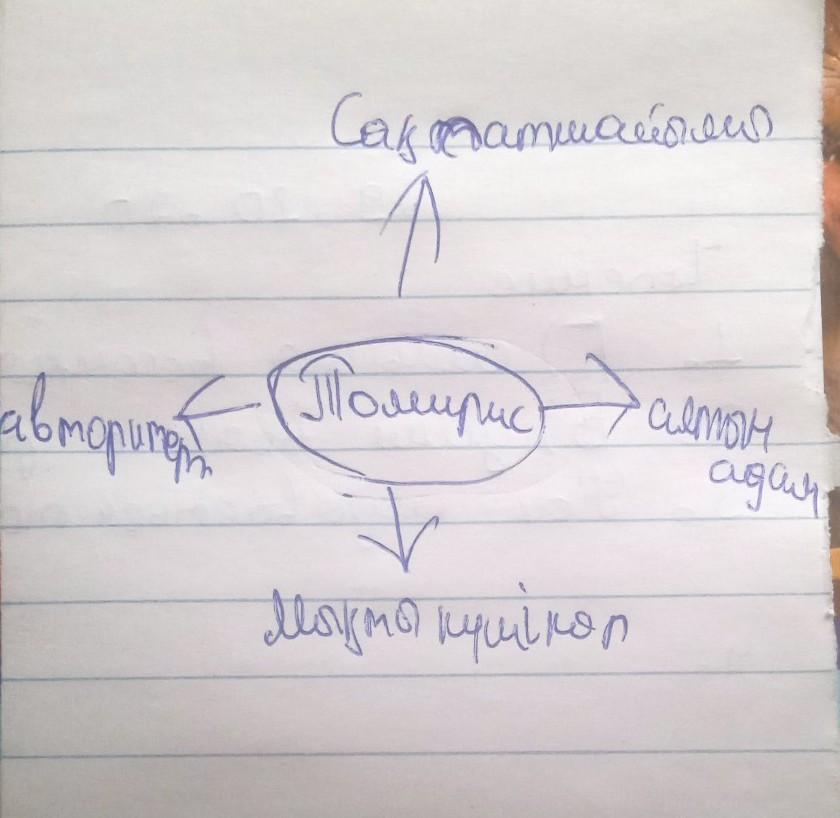 Сақ патшайымы
авторитет
Томирис
алтын
адам
Мықты күші көп